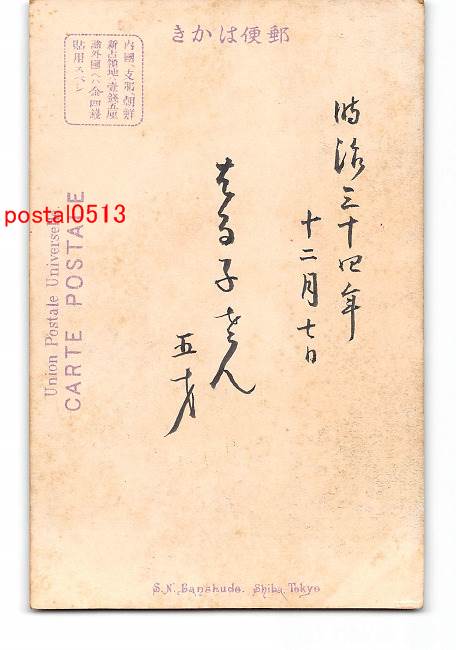 きかは便郵
内國、支那、朝鮮
新占領地ハ壹錢五厘
諸外國ヘハ金四錢
貼用スベシ
明治三十四年
十二月七日
はる子さん
五才
postal0513
Union Postale Universelle.
CARTE POSTALE
S.N. Banshudo. Shiba, Tokyo